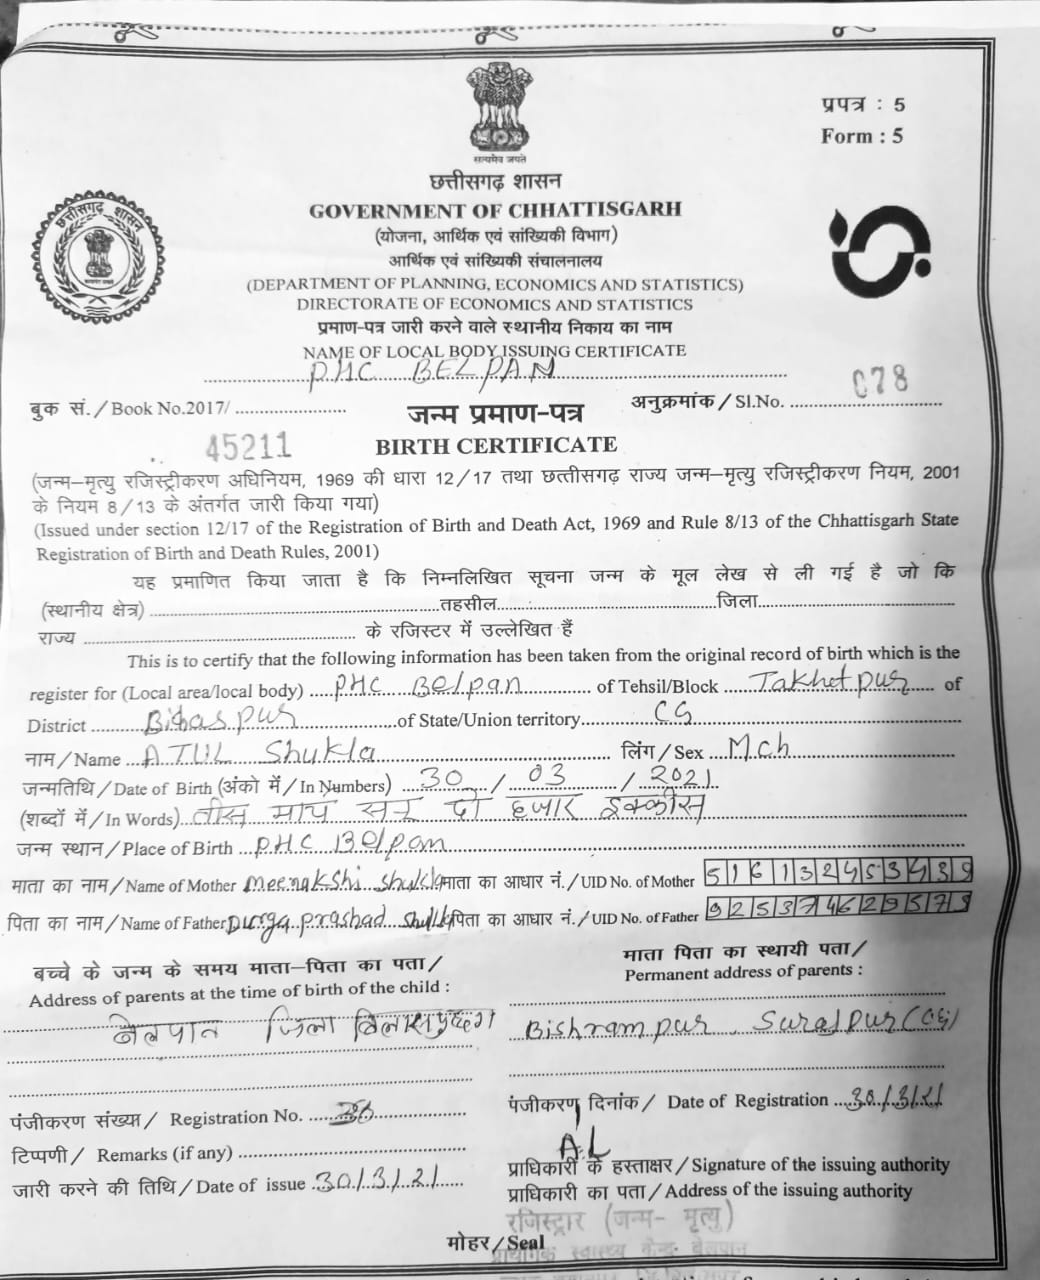 प्रपत्र : 5
Form : 5
सत्यमेव जयते
छत्तीसगढ़ शासन
छत्तीसगढ़ शासन
GOVERNMENT OF CHHATTISGARH
(योजना, आर्थिक एवं सांख्यिकी विभाग)
आर्थिक एवं सांख्यिकी संचालनालय
(DEPARTMENT OF PLANNING, ECONOMICS AND STATISTICS)
DIRECTORATE OF ECONOMICS AND STATISTICS
प्रमाण-पत्र जारी करने वाले स्थानीय निकाय का नाम
NAME OF LOCAL BODY ISSUING CERTIFICATE
PHC BELPAN
बुक सं./Book No.2017/ 45211
अनुक्रमांक/Sl.No. 078
जन्म प्रमाण-पत्र
BIRTH CERTIFICATE
(जन्म–मृत्यु रजिस्ट्रीकरण अधिनियम, 1969 की धारा 12/17 तथा छत्तीसगढ़ राज्य जन्म–मृत्यु रजिस्ट्रीकरण नियम, 2001
के नियम 8/13 के अंतर्गत जारी किया गया)
(Issued under section 12/17 of the Registration of Birth and Death Act, 1969 and Rule 8/13 of the Chhattisgarh State
Registration of Birth and Death Rules, 2001)
यह प्रमाणित किया जाता है कि निम्नलिखित सूचना जन्म के मूल लेख से ली गई है जो कि
(स्थानीय क्षेत्र) तहसील जिला
राज्य के रजिस्टर में उल्लेखित हैं
This is to certify that the following information has been taken from the original record of birth which is the
register for (Local area/local body) PHC Belpan of Tehsil/Block Takhatpur of
District Bilaspur of State/Union territory CG
नाम/Name ATUL Shukla लिंग/Sex Mch
जन्मतिथि/Date of Birth (अंको में/In Numbers) 30/03/2021
(शब्दों में/In Words) तीस मार्च सन् दो हजार इक्कीस
जन्म स्थान/Place of Birth PHC Belpan
माता का नाम/Name of Mother Meenakshi Shukla माता का आधार नं./UID No. of Mother
पिता का नाम/Name of Father Durga prashad Shukla पिता का आधार नं./UID No. of Father
बच्चे के जन्म के समय माता–पिता का पता/
Address of parents at the time of birth of the child :
बेलपान जिला
माता पिता का स्थायी पता/
Permanent address of parents :
Bishrampur Surajpur (CG)
पंजीकरण संख्या/ Registration No.
पंजीकरण दिनांक/ Date of Registration 30/3/21
टिप्पणी/ Remarks (if any)
जारी करने की तिथि/Date of issue 30/3/21
प्राधिकारी के हस्ताक्षर/Signature of the issuing authority
प्राधिकारी का पता/Address of the issuing authority
रजिस्ट्रार (जन्म- मृत्यु)
मोहर/Seal
प्राथमिक स्वास्थ्य केन्द्र बेलपान